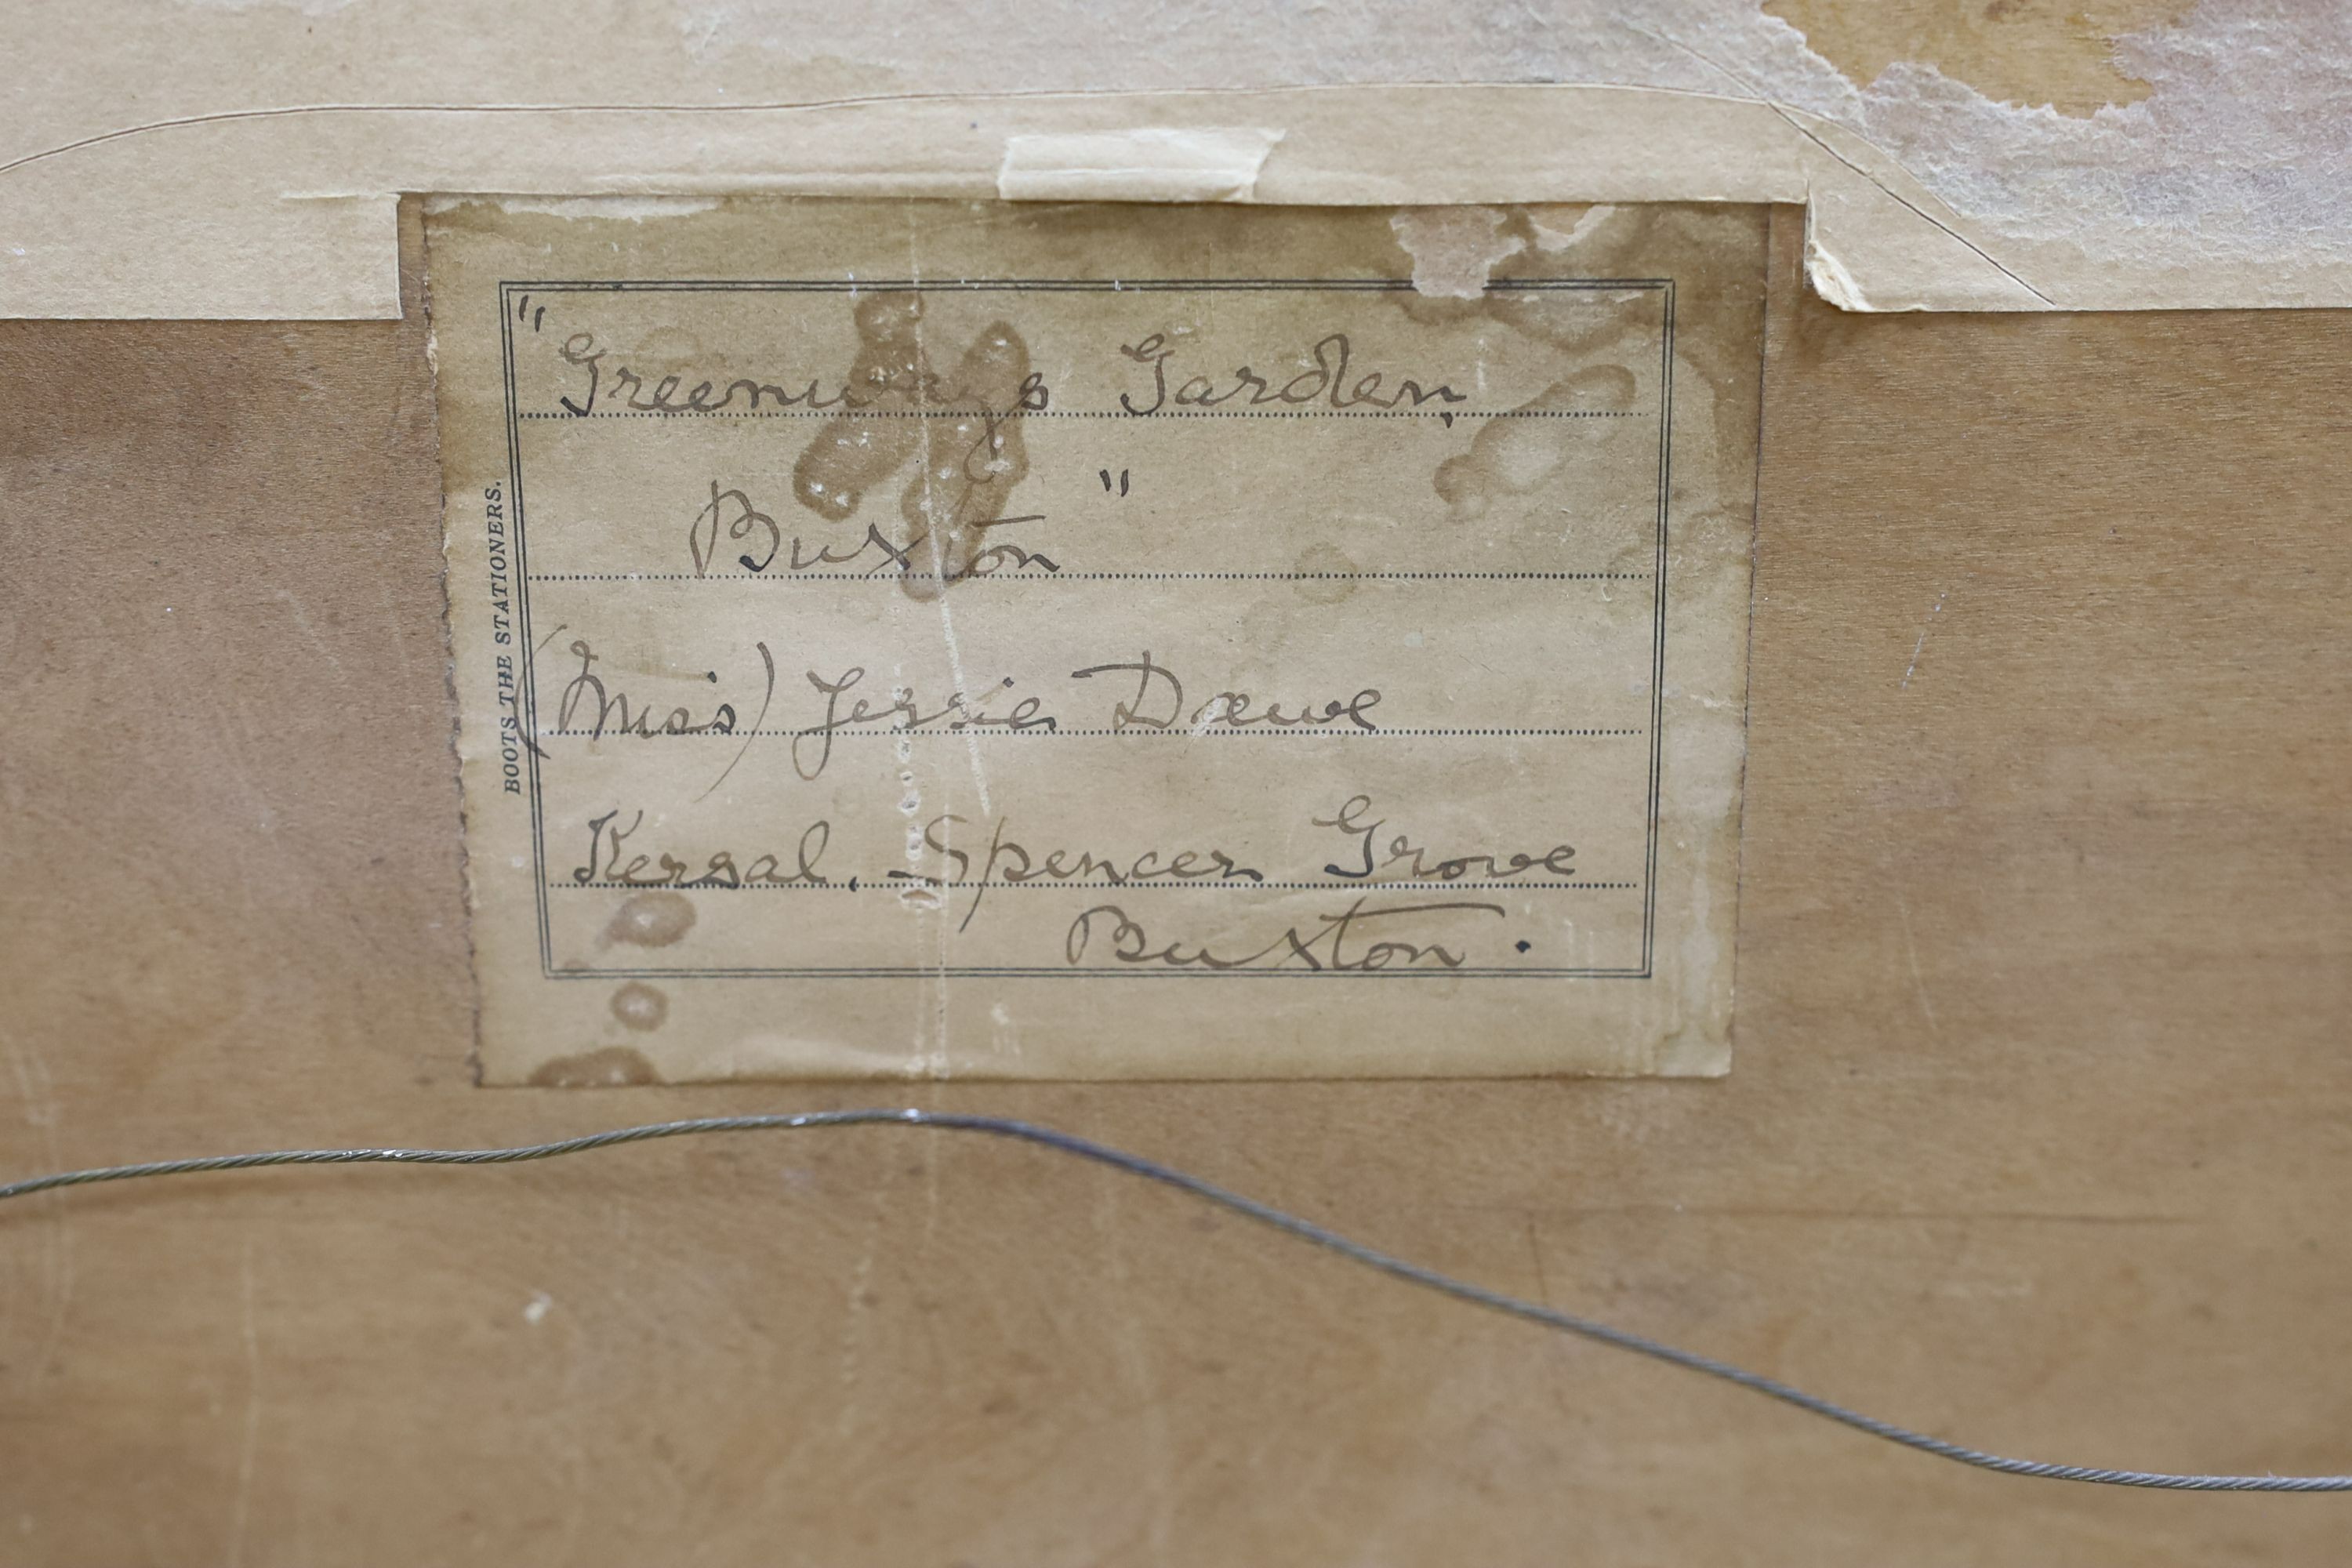 "Greenways Garden,
Buxton"
(Miss) Jessie Dawe
Kersal. Spencer Grove
Buxton.
BOOTS THE STATIONERS.